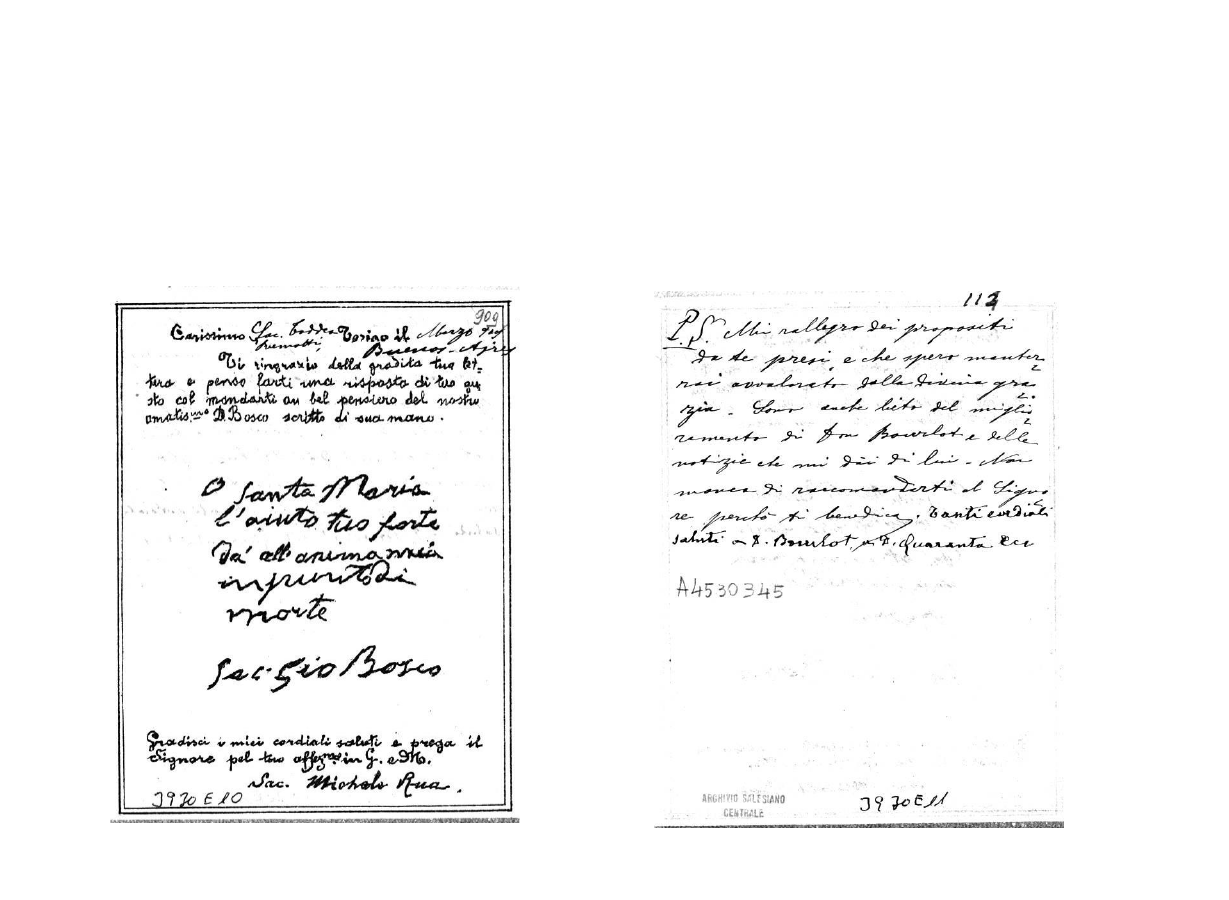 909
Carissimo Sac. Taddeo Torino il Marzo
Remotti, Buenos-Ayres
Ti ringrazio della gradita tua let-
tera e penso farti una risposta di tuo gu
sto col mandarti un bel pensiero del nostro
amatis.mo D. Bosco scritto di sua mano.
O Santa Maria
l'aiuto tuo forte
da' all'anima mia
in punto di
morte
Sac. Gio Bosco
Gradisci i miei cordiali saluti e prega il
Signore pel tuo affez.mo in G. e M.
Sac. Michele Rua.
3970 E 10
112
P.S. Mi rallegro dei propositi
da te presi, e che spero manter
rai avvalorato dalla divina gra
zia. Sono anche lieto del miglio
ramento di Don Bourlot e delle
notizie che mi dai di lui. Non
manco di raccomandarti al Signo
re perchè ti benedica. Tanti cordiali
saluti a D. Bourlot, a D. Quaranta ecc
A4530345
ARCHIVIO SALESIANO
CENTRALE
3970 E 11